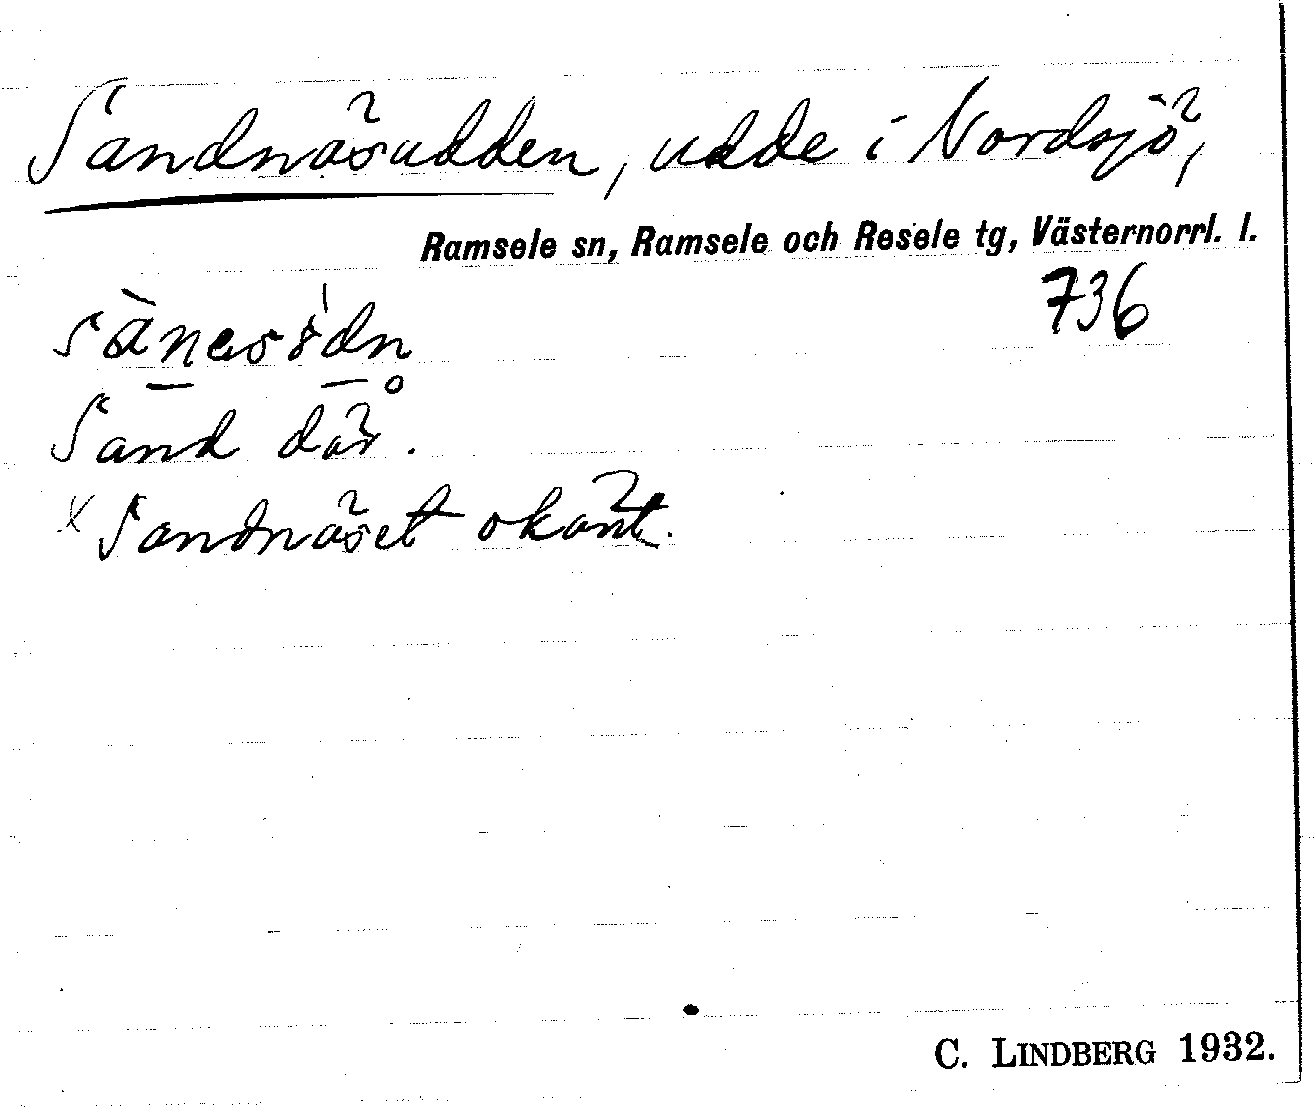 Sandnäsudden, udde i Nordsjö,
Ramsele sn, Ramsele och Resele tg, Västernorrl. l.
736
Sand där.
x Sandnäset okänt.
C. LINDBERG 1932.